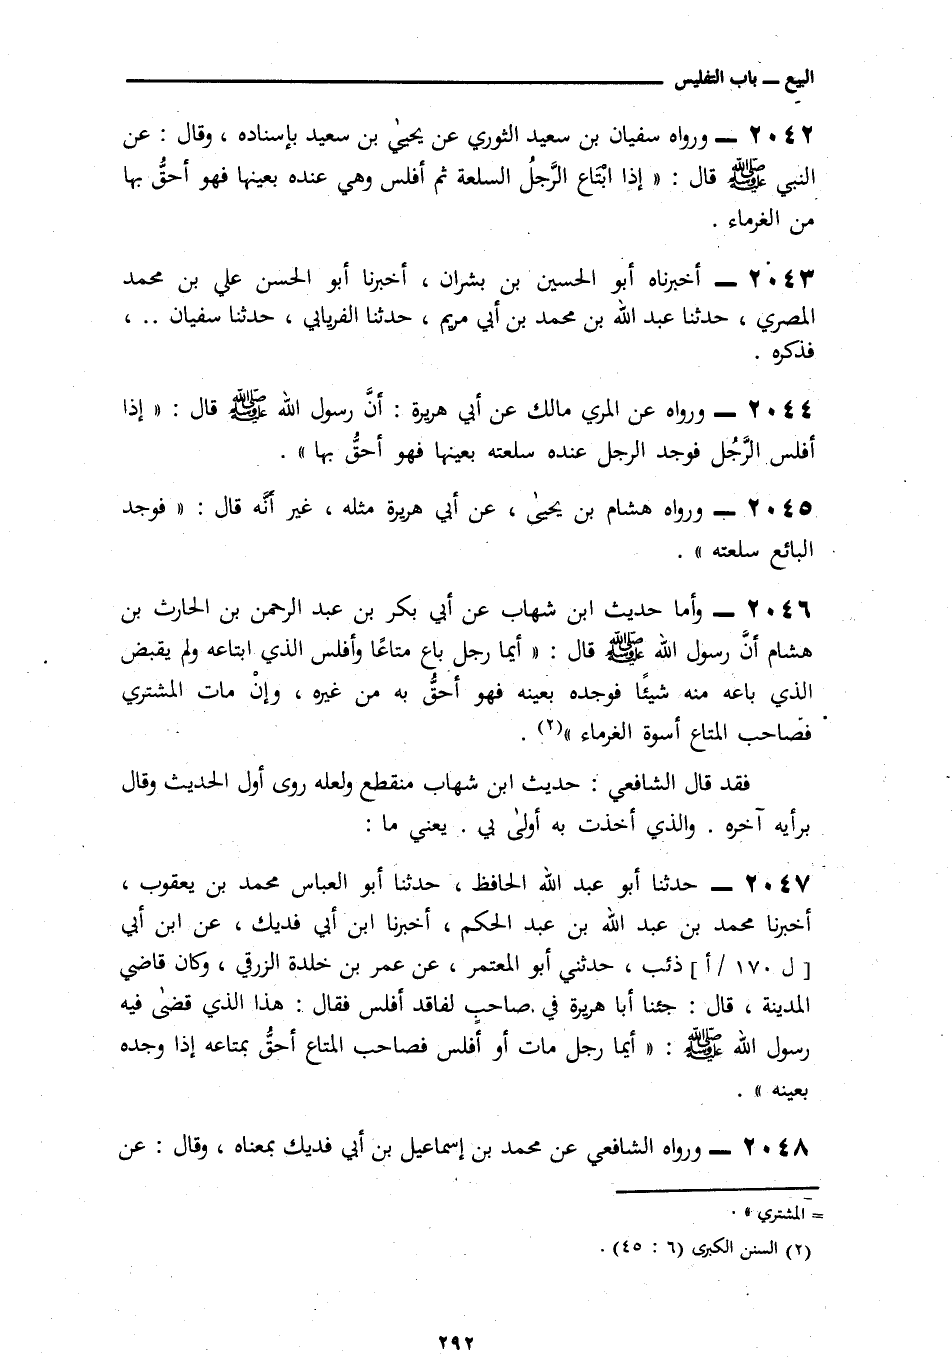 البيع ــ باب التفليس
٢٠٤٢ ــ ورواه سفيان بن سعيد الثوري عن يحيىٰ بن سعيد بإسناده ، وقال : عن
النبي ﷺ قال : « إذا ابْتَاع الرَّجلُ السلعة ثم أفلس وهي عنده بعينها فهو أحقُّ بها
من الغرماء .
٢٠٤٣ ــ أخبرناه أبو الحسين بن بشران ، أخبرنا أبو الحسن علي بن محمد
المصري ، حدثنا عبد الله بن محمد بن أبي مريم ، حدثنا الفريابي ، حدثنا سفيان .. ،
فذكره .
٢٠٤٤ ــ ورواه عن المري مالك عن أبي هريرة : أنَّ رسول الله ﷺ قال : « إذا
أفلس الرَّجُل فوجد الرجل عنده سلعته بعينها فهو أحقُّ بها » .
٢٠٤٥ ــ ورواه هشام بن يحيىٰ ، عن أبي هريرة مثله ، غير أنَّه قال : « فوجد
البائع سلعته » .
٢٠٤٦ ــ وأما حديث ابن شهاب عن أبي بكر بن عبد الرحمن بن الحارث بن
هشام أنَّ رسول الله ﷺ قال : « أيما رجل باع متاعًا وأفلس الذي ابتاعه ولم يقبض
الذي باعه منه شيئًا فوجده بعينه فهو أحقُّ به من غيره ، وإنْ مات المشتري
فصاحب المتاع أسوة الغرماء »(٢) .
فقد قال الشافعي : حديث ابن شهاب منقطع ولعله روى أول الحديث وقال
برأيه آخره . والذي أخذت به أولىٰ بي . يعني ما :
٢٠٤٧ ــ حدثنا أبو عبد الله الحافظ ، حدثنا أبو العباس محمد بن يعقوب ،
أخبرنا محمد بن عبد الله بن عبد الحكم ، أخبرنا ابن أبي فديك ، عن ابن أبي
[ ل ١٧٠ / أ ] ذئب ، حدثني أبو المعتمر ، عن عمر بن خلدة الزرقي ، وكان قاضي
المدينة ، قال : جئنا أبا هريرة في صاحبٍ لفاقد أفلس فقال : هذا الذي قضىٰ فيه
رسول الله ﷺ : « أيما رجل مات أو أفلس فصاحب المتاع أحقُّ بمتاعه إذا وجده
بعينه » .
٢٠٤٨ ــ ورواه الشافعي عن محمد بن إسماعيل بن أبي فديك بمعناه ، وقال : عن
= المشتري » .
(٢) السنن الكبرى (٦ : ٤٥) .
٢٩٢